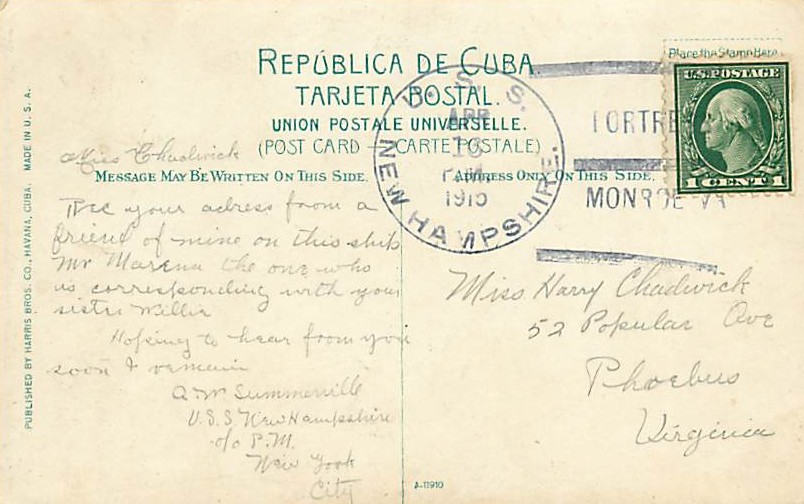 REPÚBLICA DE CUBA
TARJETA POSTAL.
UNION POSTALE UNIVERSELLE.
(POST CARD — CARTE POSTALE)
MESSAGE MAY BE WRITTEN ON THIS SIDE.
ADDRESS ONLY ON THIS SIDE.
Place the Stamp Here
U.S. POSTAGE
1 CENT 1
U. S. S.
NEW HAMPSHIRE.
APR
PM
1915
FORTRE
MONROE VA
PUBLISHED BY HARRIS BROS. CO., HAVANA, CUBA. MADE IN U.S.A.
Miss Chadwick
Rec your adress from a
friend of mine on this ship
Mr Marena the one who
is corresponding with your
sister Willie
Hopeing to hear from you
soon I remain
A W Summerville
U.S.S New Hampshire
c/o P.M.
New York
City
Miss Harry Chadwick
52 Popular Ave
Phoebus
Virginia
A-11910